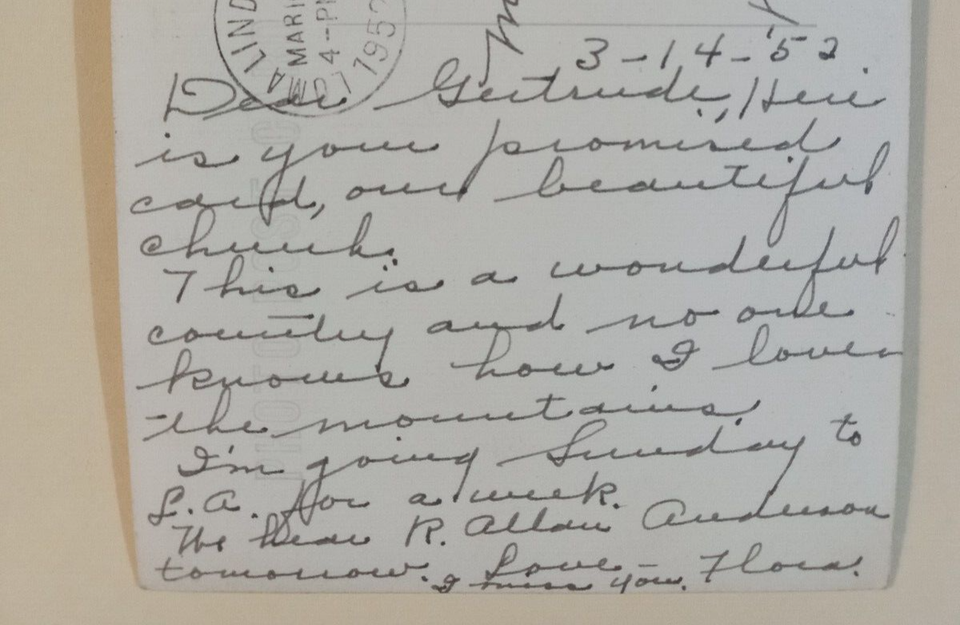 3-14-'52
Dear Gertrude, Here
is your promised
card, our beautiful
church.
This is a wonderful
country and no one
knows how I love
the mountains.
I'm going Sunday to
L.A. for a week.
We hear R. Allan Anderson
tomorrow. Love - Flora.
I miss you.
LIND
MAR
4-PM
1952